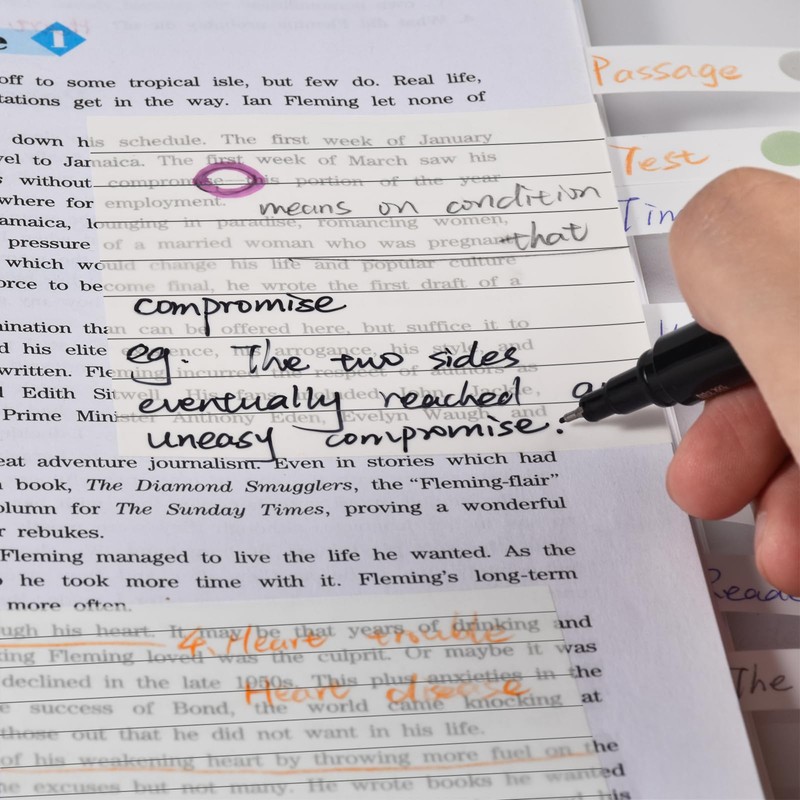 e 1
off to some tropical isle, but few do. Real life,
tations get in the way. Ian Fleming let none of
down his schedule. The first week of January
vel to Jamaica. The first week of March saw his
s without compromise—this portion of the year
where for employment.
means on condition
amaica, lounging in paradise, romancing women,
pressure of a married woman who was pregnant
that
which would change his life and popular culture
orce to become final, he wrote the first draft of a
compromise
mination than can be offered here, but suffice it to
eg. The two sides
d his elite his arrogance, his style and
written. Fleming incurred the respect of authors as
eventually reached a
l Edith Sitwell. His fans included John
uneasy compromise.
Prime Minister Anthony Eden, Evelyn Waugh and
eat adventure journalism. Even in stories which had
book, The Diamond Smugglers, the “Fleming-flair”
olumn for The Sunday Times, proving a wonderful
r rebukes.
Fleming managed to live the life he wanted. As the
o he took more time with it. Fleming's long-term
more often.
ugh his heart. It may be that years of drinking and
4. Heart trouble
king Fleming loved was the culprit. Or maybe it was
declined in the late 1950s. This plus anxieties in the
Heart disease
e success of Bond, the world came knocking at
those out that he did not want in his life.
of his weakening heart by throwing more fuel on the
he excuses but not many. He wrote books he wanted
his
Passage
Test
Tim
Reade
The